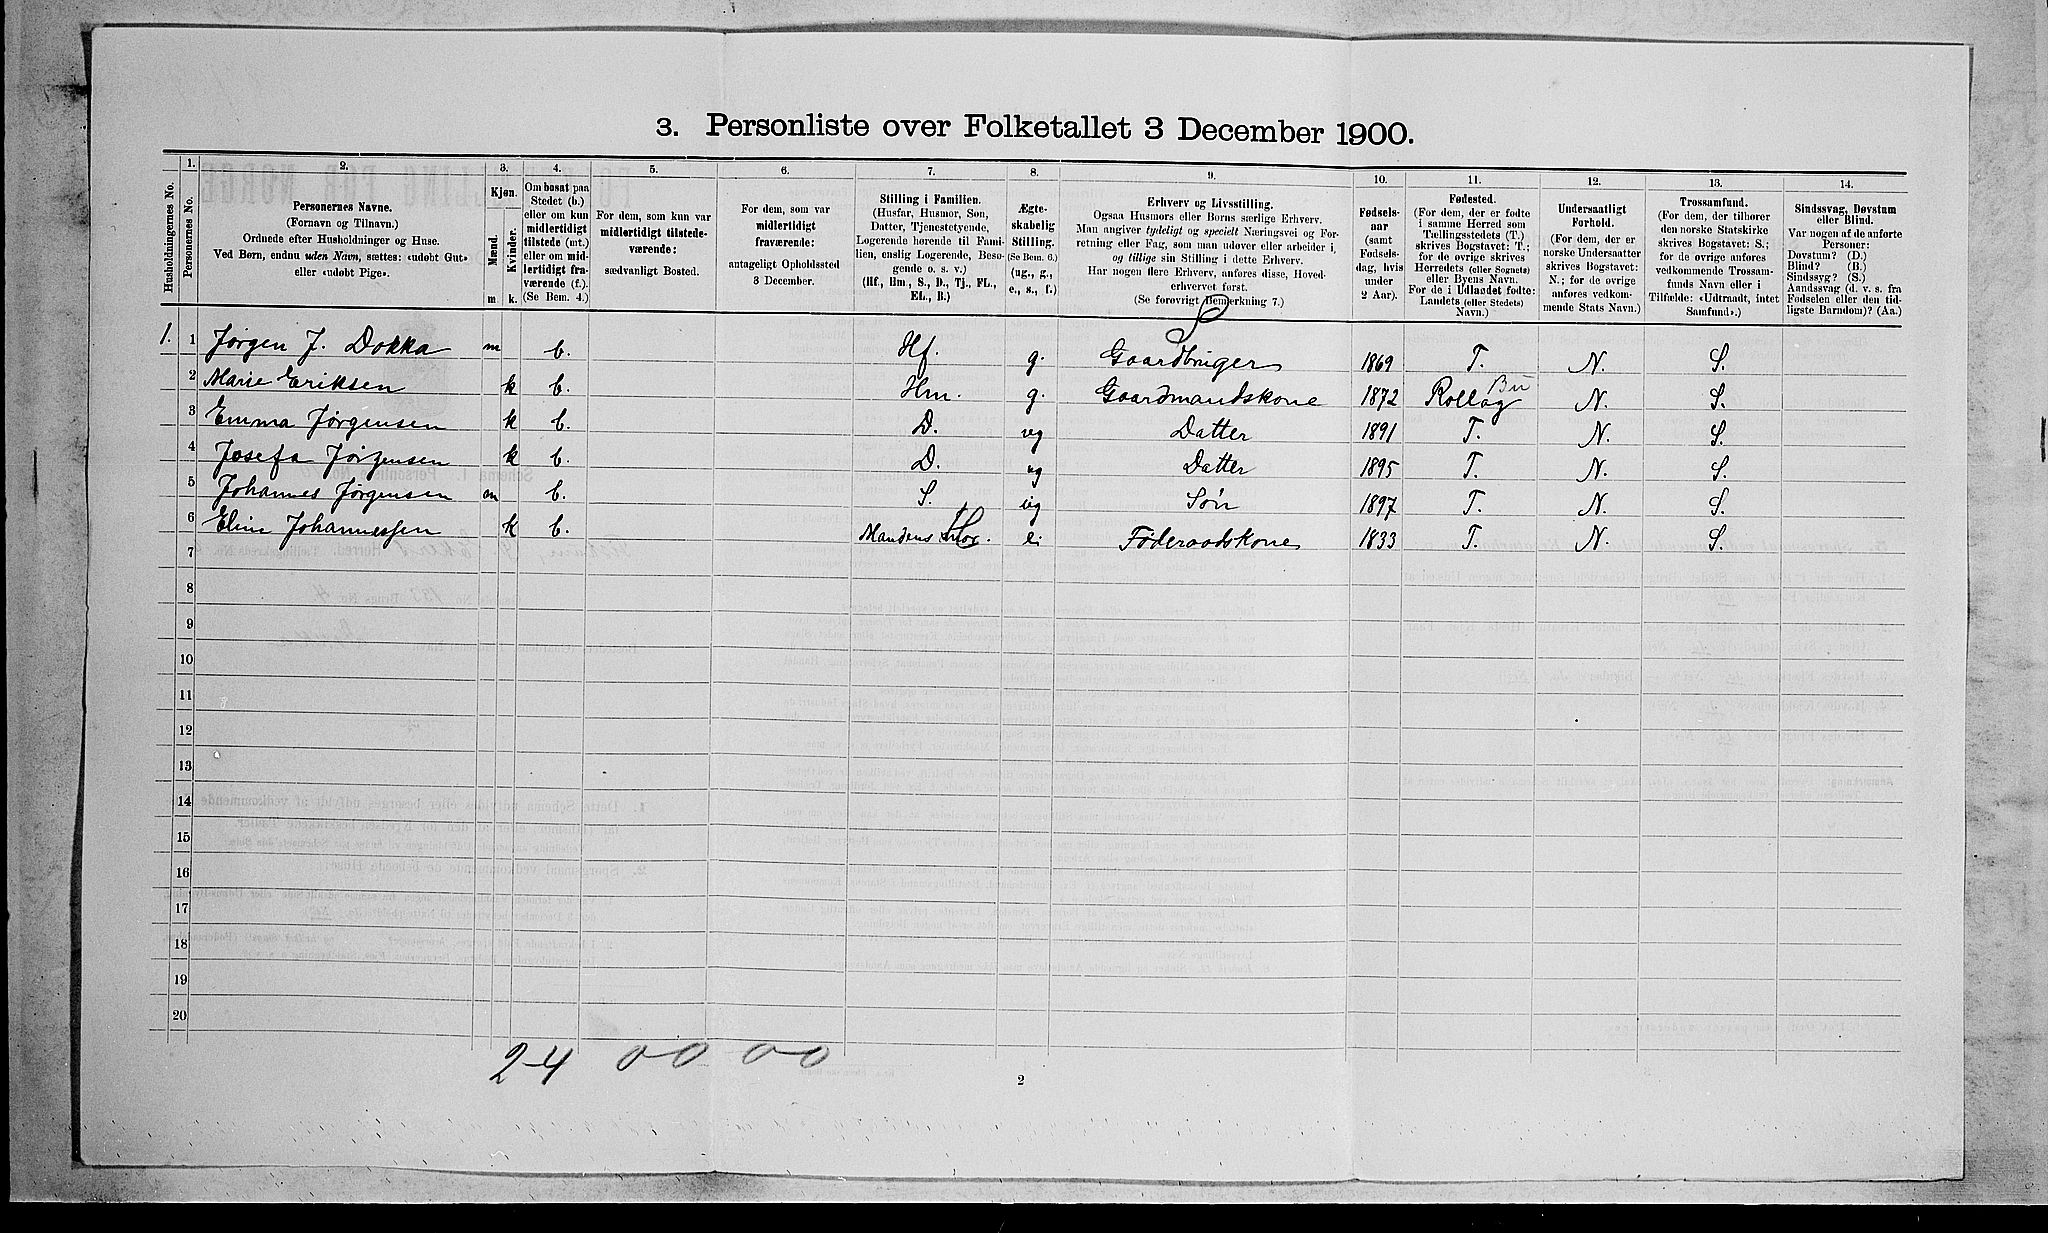 3. Personliste over Folketallet 3 December 1900.
1. 2. 3. 4. 5. 6. 7. 8. 9. 10. 11. 12. 13. 14.
Husholdningernes No.
Personernes No.
Personernes Navne.
(Fornavn og Tilnavn.)
Ordnede efter Husholdninger og Huse.
Ved Børn, endnu uden Navn, sættes: «udøbt Gut»
eller «udøbt Pige».
Kjøn.
Mænd.
Kvinder.
m. k.
Om bosat paa
Stedet (b.)
eller om kun
midlertidigt
tilstede (mt.)
eller om mid-
lertidigt fra-
værende (f.).
(Se Bem. 4.)
For dem, som kun var
midlertidigt tilstede-
værende:
sædvanligt Bosted.
For dem, som var
midlertidigt
fraværende:
antageligt Opholdssted
3 December.
Stilling i Familien.
(Husfar, Husmor, Søn,
Datter, Tjenestetyende,
Logerende hørende til Fami-
lien, enslig Logerende, Besø-
gende o. s. v.)
(Hf., Hm., S., D., Tj., FL.,
EL., B.)
Ægte-
skabelig
Stilling.
(Se Bem. 6.)
(ug., g.,
e., s., f.)
Erhverv og Livsstilling.
Ogsaa Husmors eller Børns særlige Erhverv.
Man angiver tydeligt og specielt Næringsvei og For-
retning eller Fag, som man udøver eller arbeider i,
og tillige sin Stilling i dette Erhverv.
Har nogen flere Erhverv, anføres disse, Hoved-
erhvervet først.
(Se forøvrigt Bemerkning 7.)
Fødsels-
aar
(samt
Fødsels-
dag, hvis
under
2 Aar).
Fødested.
(For dem, der er fødte
i samme Herred som
Tællingsstedets (T.)
skrives Bogstavet: T.;
for de øvrige skrives
Herredets (eller Sognets)
eller Byens Navn.
For de i Udlandet fødte:
Landets (eller Stedets)
Navn.)
Undersaatligt
Forhold.
(For dem, der er
norske Undersaatter
skrives Bogstavet:
N.; for de øvrige
anføres vedkom-
mende Stats Navn.)
Trossamfund.
(For dem, der tilhører
den norske Statskirke
skrives Bogstavet: S.;
for de øvrige anføres
vedkommende Trossam-
funds Navn eller i
Tilfælde: «Udtraadt, intet
Samfund».)
Sindssvag, Døvstum
eller Blind.
Var nogen af de anførte
Personer:
Døvstum? (D.)
Blind? (B.)
Sindssyg? (S.)
Aandssvag (d. v. s. fra
Fødselen eller den tid-
ligste Barndom)? (Aa.)
1. 1 Jørgen J. Dokka m b. Hf. g. Gaardbruger 1869 T. N. S.
2 Marie Eriksen k b. Hm. g. Gaardmandskone 1872 Rollag Bu N. S.
3 Emma Jørgensen k b. D. ug Datter 1891 T. N. S.
4 Josefa Jørgensen k b. D. ug Datter 1895 T. N. S.
5 Johannes Jørgensen m b. S. ug Søn 1897 T. N. S.
6 Eline Johannessen k b. Mandens Mor. e. Føderaadskone 1833 T. N. S.
7
8
9
10
11
12
13
14
15
16
17
18
19
20
24 00 00
2